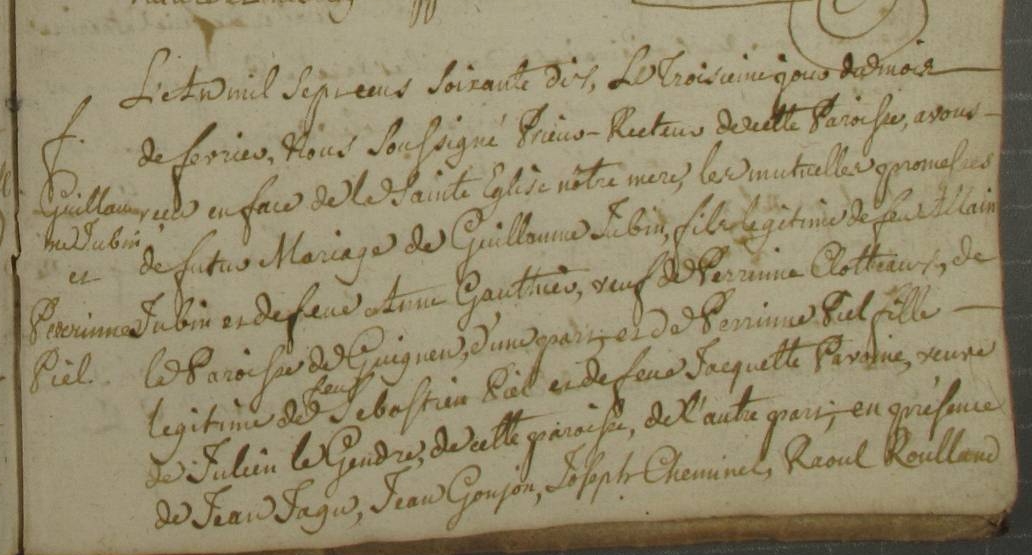 f.
Guillau
me Jubin
et
Perrinne
Piel.
L'An mil Sept cens Soixante dix, Le Troisieme jour du mois
de fevrier, Nous Soussigné Prieur-Recteur de cette Paroisse, avons
reçu en face de la Sainte Eglise nôtre mere, les mutuelles promesses
de futur Mariage de Guillaume Jubin, fils legitime de feu Allain
Jubin et de feue Anne Gauthier, veuf de Perrinne Clotteaux, de
la Paroisse de Guignen, d'une part; et de Perrinne Piel fille
legitime de feu Sebastien Piel et de feue Jacquette Pavoine, veuve
de Julien le Gendre, de cette paroisse, de l'autre part; en présence
de Jean Jagu, Jean Goujon, Joseph Cheminel, Raoul Roulland